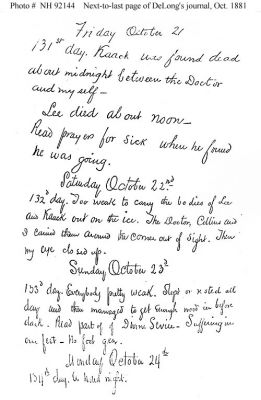 Photo # NH 92144 Next-to-last page of DeLong's journal, Oct. 1881
Friday October 21
131st day. Kaack was found dead
about midnight between the Doctor
and myself—
Lee died about noon—
Read prayers for Sick when he found
he was going.
Saturday October 22nd
132d day. Too weak to carry the bodies of Lee
and Kaack out on the ice. The Doctor, Collins and
I carried them around the corner out of sight. Then
my eye closed up.
Sunday October 23d
133d day. Everybody pretty weak. Slept or rested all
day and then managed to get enough wood in before
dark. Read part of Divine Service— Suffering in
our feet— No foot gear.
Monday October 24th
134th day. A hard night.